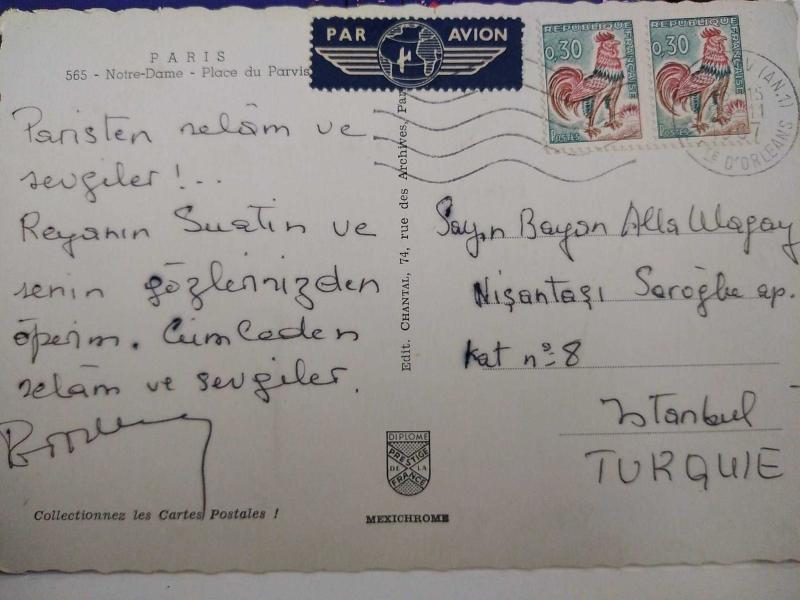 PARIS
565 - Notre-Dame - Place du Parvis
PAR AVION
REPUBLIQUE FRANÇAISE
0,30
POSTES
REPUBLIQUE FRANÇAISE
0,30
POSTES
(AN.1)
LE D'ORLEANS
Paristen selâm ve
sevgiler!...
Reyanın Suatin ve
senin gözlerinizden
öperim. Cümleden
selâm ve sevgiler.
Edit. CHANTAL, 74, rue des Archives, Par
Sayın Bayan Alla Ulagay
Nişantaşı Saroğlu ap.
Kat nº 8
Istanbul
TURQUIE
DIPLOME
PRESTIGE
DE LA
FRANCE
Collectionnez les Cartes Postales !
MEXICHROME